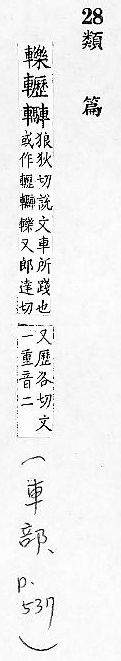 28 類篇
轢轣
狼狄切說文車所踐也
或作轣轢又郎達切
又歷各切文
一重音二
(車部、p.537)